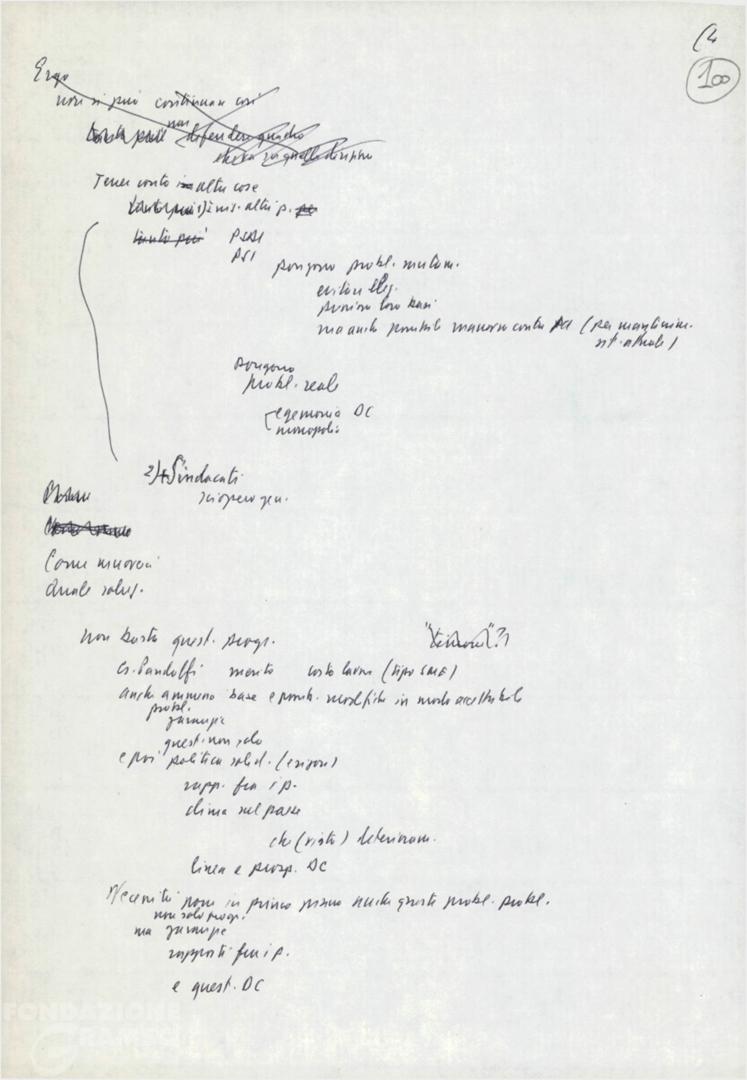 (4
100
Ergo
non si può continuare così
non difendere quadro
Tener conto altre cose
1) iniz. altri p.
tanto più PSDI
PSI
pongono probl. mutam.
evitare eleg.
pressione loro basi
ma anche possibile manovra contro PCI (per mantenim.
sit. attuale)
pongono
probl. reale
egemonia DC
monopolio
2) Sindacati
sciopero gen.
Come muoverci
Quale soluz.
Non basta quest. progr.
es. Pandolfi merito costo lavoro (tipo SME)
anche ammesso base e possib. modifiche in modo accettabile
probl.
garanzie
quest. non solo
e poi politica solid. (esigono)
rapp. fra i p.
clima nel paese
che (visto) deterioram.
linea e prosp. DC
Necessità porre in primo piano anche questo probl. probl.
non solo progr.
ma garanzie
rapporti fra i p.
e quest. DC
FONDAZIONE
GRAMSCI